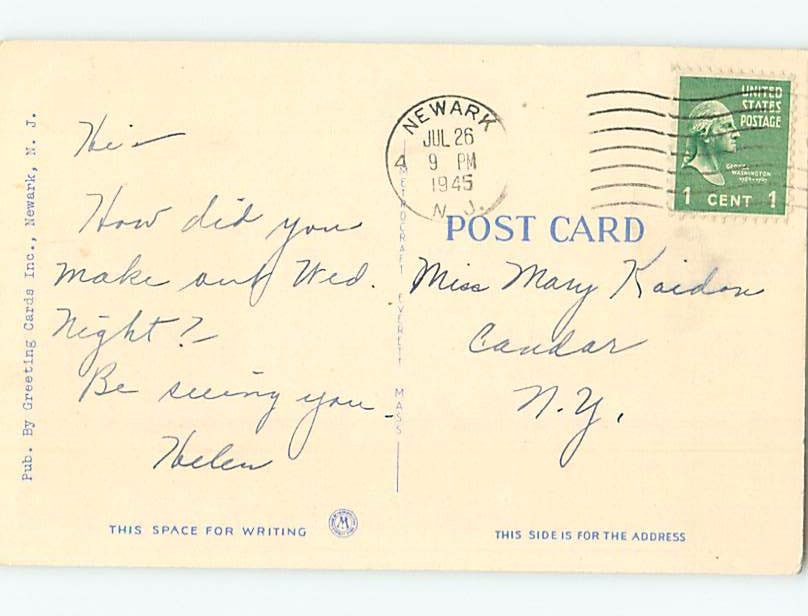 Pub. By Greeting Cards Inc., Newark, N. J.
Hi -
How did you
make out Wed.
Night? -
Be seeing you -
Helen
THIS SPACE FOR WRITING
M
METROCRAFT EVERETT MASS
NEWARK
JUL 26
4 9 PM
1945
N. J.
UNITED
STATES
POSTAGE
GEORGE
WASHINGTON
1789-1797
1 CENT 1
POST CARD
Miss Mary Kaidon
Candor
N.Y.
THIS SIDE IS FOR THE ADDRESS